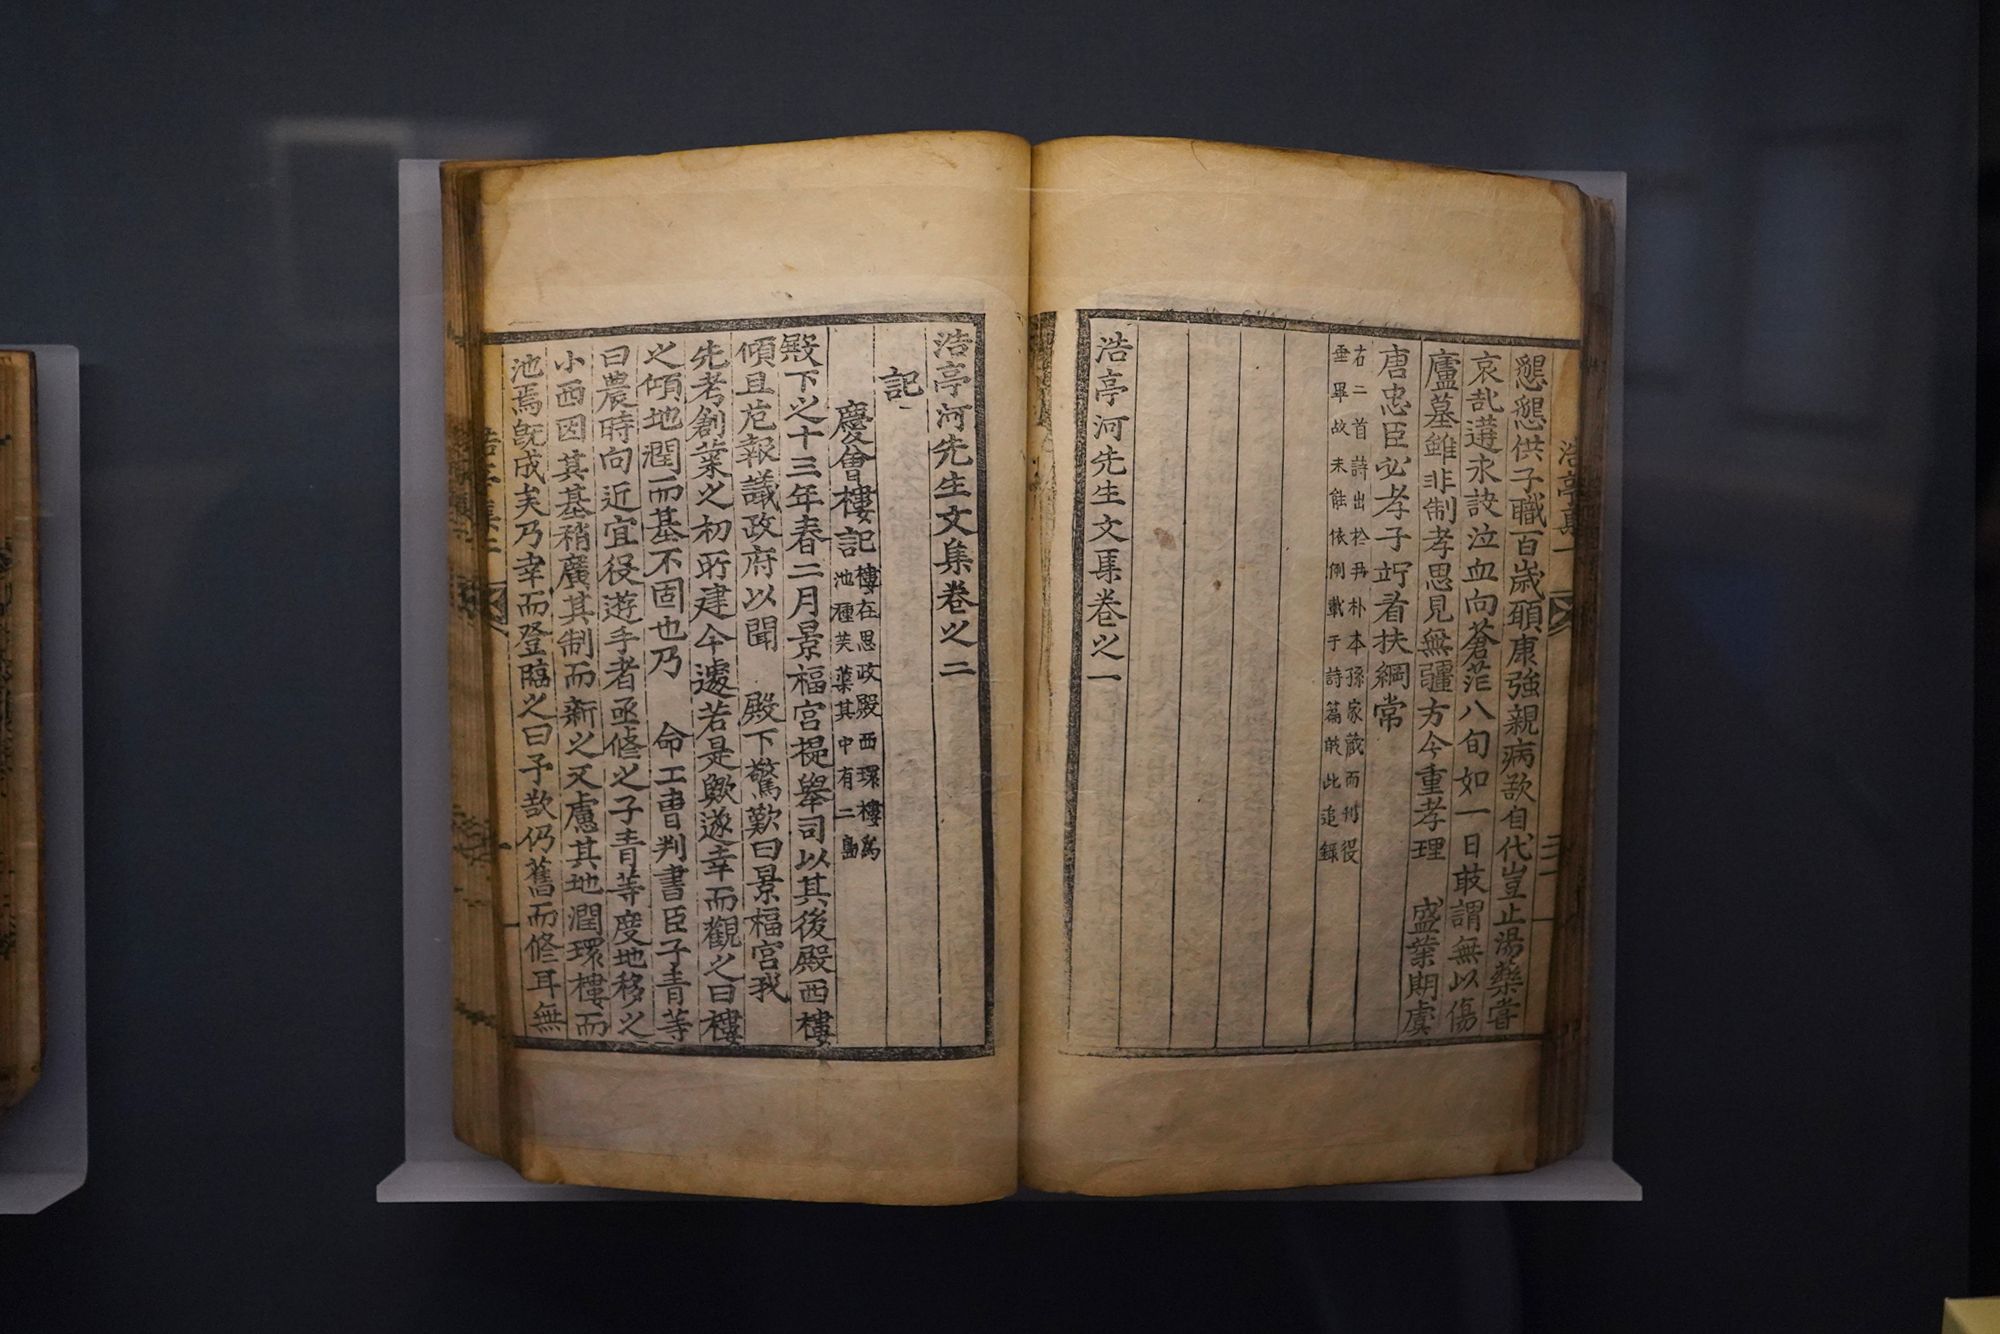 懇懇供子職百歲願康強親病欲自代豈止湯藥嘗
哀哉遘永訣泣血向蒼茫八旬如一日敢謂無以傷
廬墓雖非制孝思見無疆方今重孝理　盛葉期虞
唐忠臣必孝子竚看扶綱常
右二首詩出於尹朴本孫家藏而刊役
垂畢故未能依例載于詩篇故此追錄
浩亭河先生文集卷之一
浩亭集一
浩亭河先生文集卷之二
記
慶會樓記
樓在思政殿西環樓爲
池種芙蕖其中有二島
殿下之十三年春二月景福宮提擧司以其後殿西樓
傾且危報議政府以聞　殿下驚歎曰景福宮我
先考創業之初所建今遽若是歟遂幸而觀之曰樓
之傾地潤而基不固也乃　命工曹判書臣子青等
曰農時向近宜役遊手者亟修之子青等度地移之
小西因其基稍廣其制而新之又慮其地潤環樓而
池焉旣成矣乃幸而登臨之曰予欲仍舊而修耳無